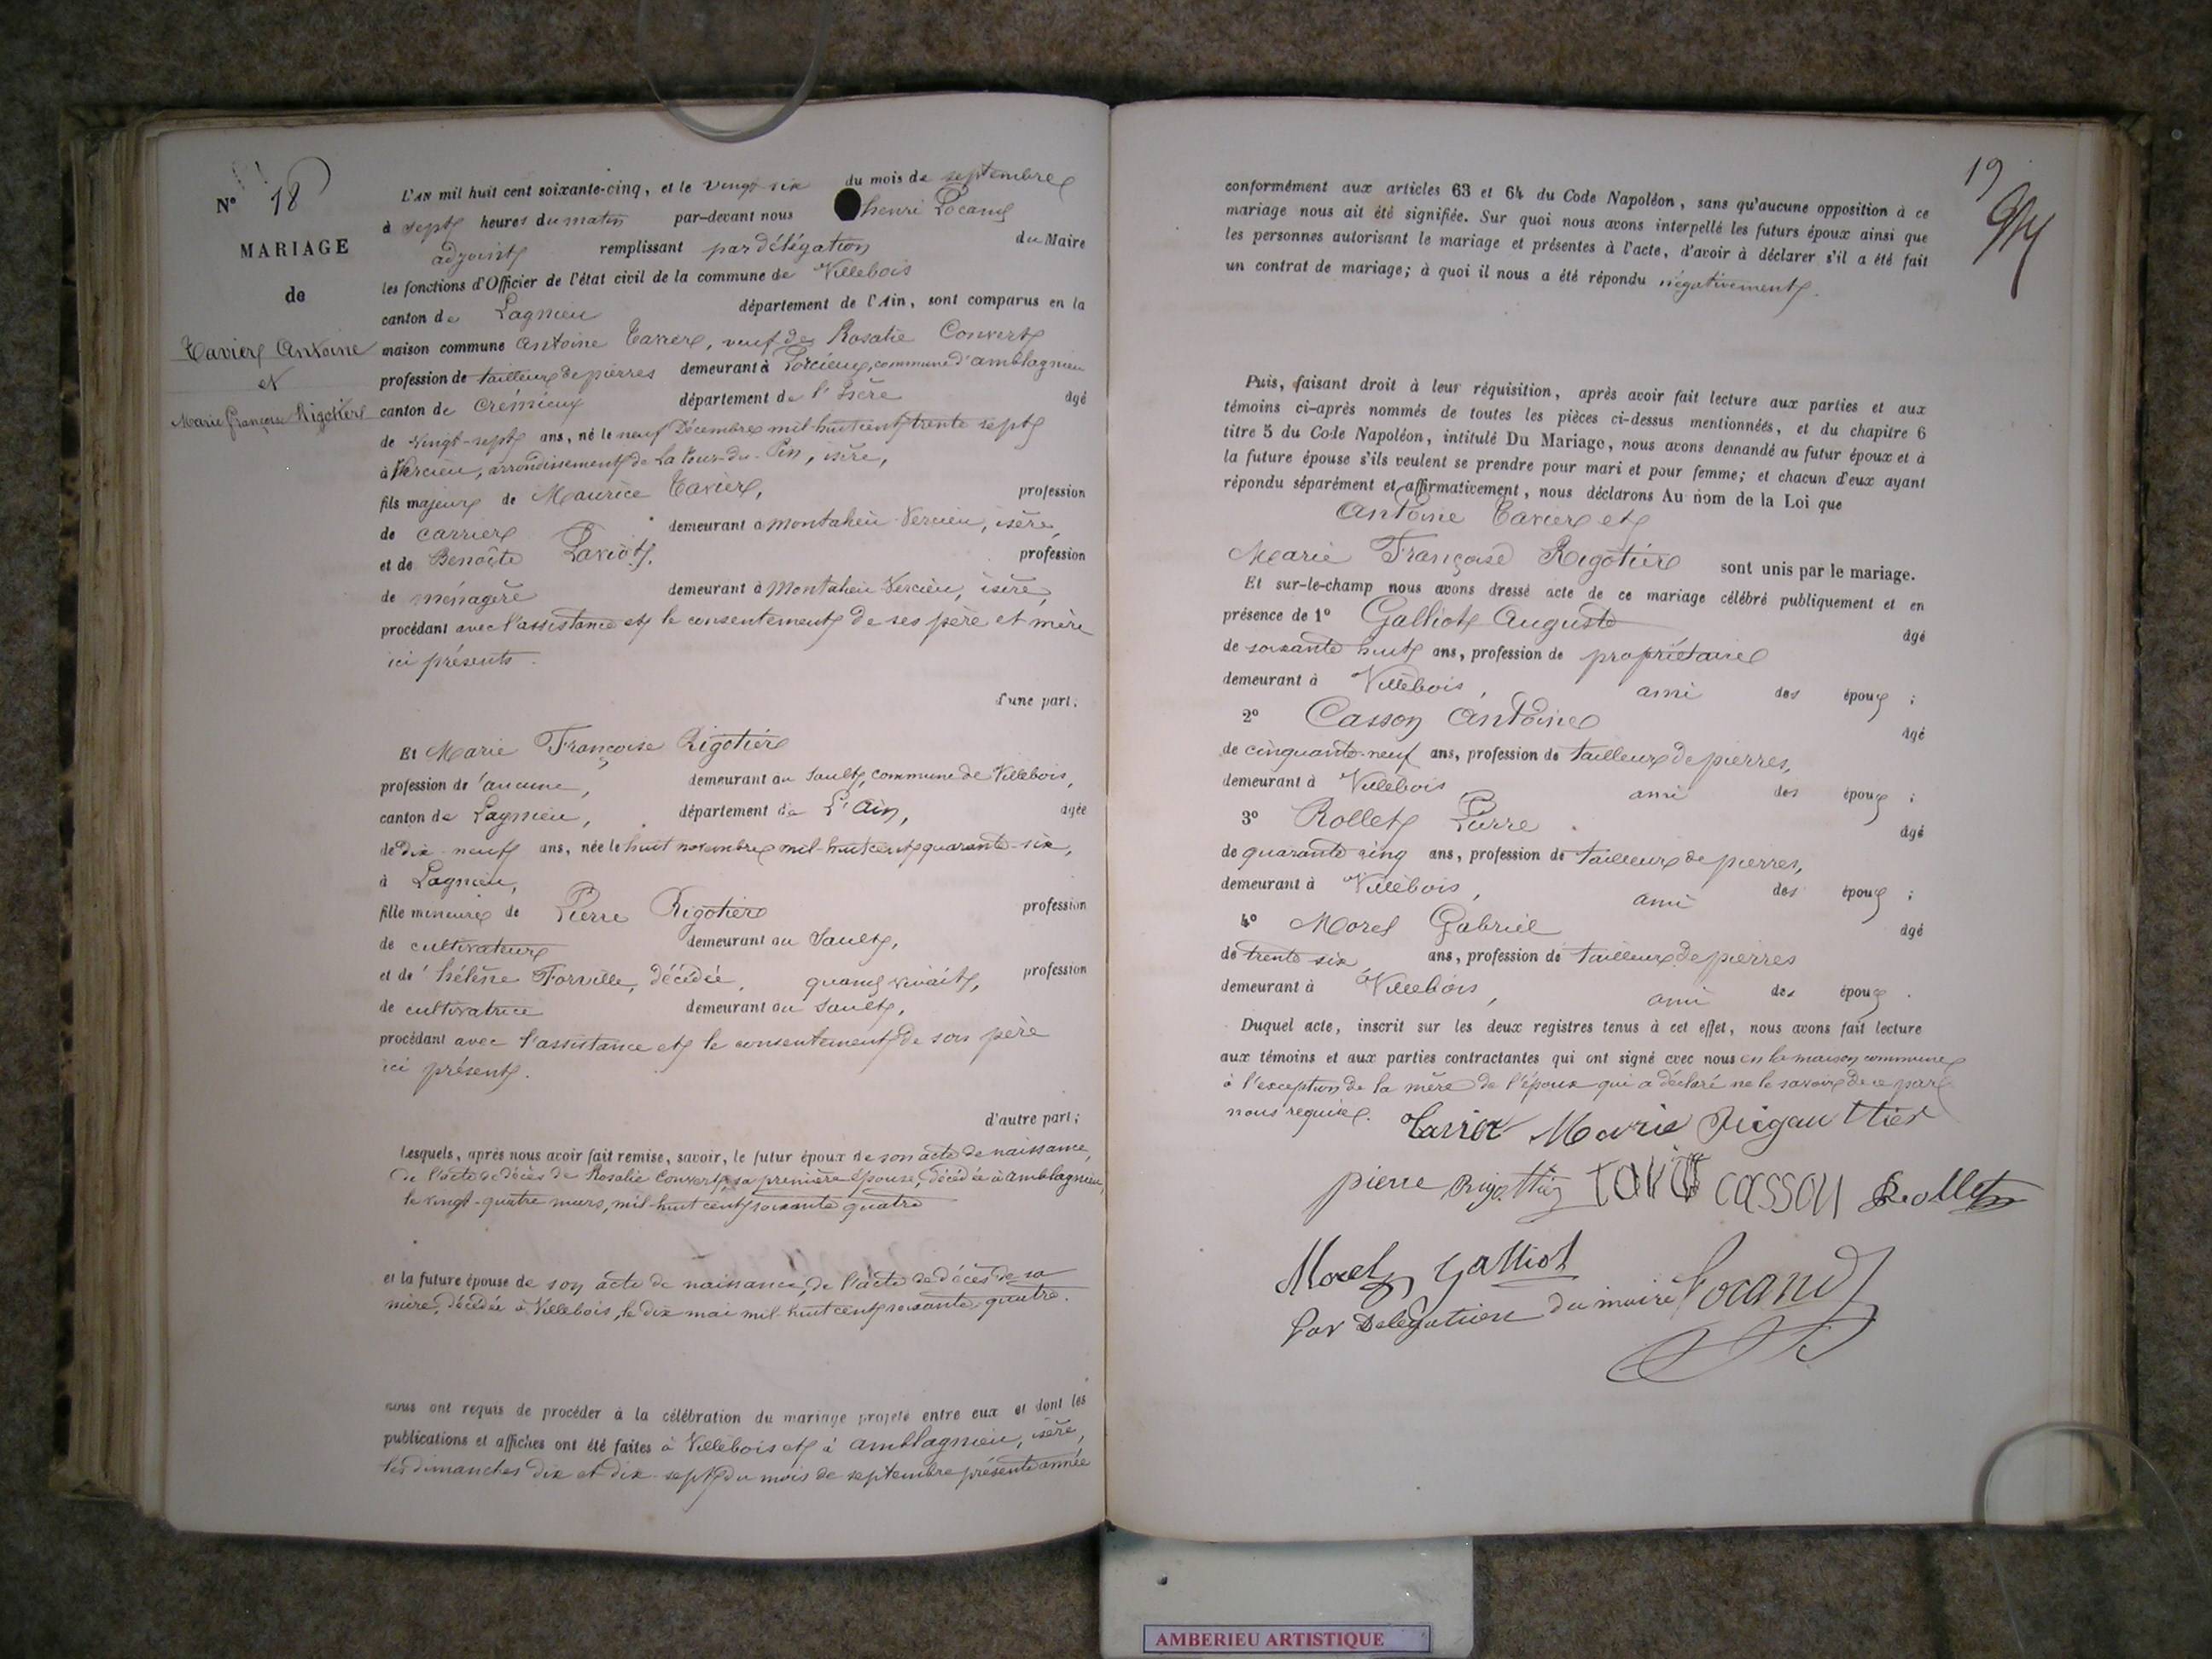 N° 18
MARIAGE
de
Tavier Antoine
et
Marie françoise Rigotier
L'AN mil huit cent soixante-cinq, et le vingt six du mois de septembre
à sept heures du matin par-devant nous henri Locand
adjoint remplissant par délégation du Maire
les fonctions d'Officier de l'état civil de la commune de Villebois
canton de Lagnieu département de l'Ain, sont comparus en la
maison commune Antoine Tavier, veuf de Rosalie Convert
profession de tailleur de pierres demeurant à Porcieu, commune d'amblagnieu
canton de Crémieux département de l'Isère âgé
de vingt-sept ans, né le neuf Décembre mil-huit cent trente sept
à Vercieu, arrondissement de La tour-du-Pin, isère,
fils majeur de Maurice Tavier, profession
de carrier demeurant à montalieu-Vercieu, isère,
et de Benoîte Laviot. profession
de ménagère demeurant à Montalieu Vercieu, isère,
procédant avec l'assistance et le consentement de ses père et mère
ici présents.
d'une part;
Et Marie Françoise Rigotier
profession d'aucune, demeurant au Sault, commune de Villebois,
canton de Lagnieu, département de L'Ain, âgée
de dix-neuf ans, née le huit novembre mil-huit cent quarante-six,
à Lagnieu,
fille mineure de Pierre Rigotier profession
de cultivateur demeurant au Sault,
et de hélène Forville, décédée, quand vivait, profession
de cultivatrice demeurant au Sault,
procédant avec l'assistance et le consentement de son père
ici présent.
d'autre part;
Lesquels, après nous avoir fait remise, savoir, le futur époux de son acte de naissance,
de l'acte de décès de Rosalie Convert, sa première épouse, décédée à amblagnieu,
le vingt-quatre mars, mil-huit cent soixante quatre
et la future épouse de son acte de naissance, de l'acte de décès de sa
mère, décédée à Villebois, le dix mai mil-huit cent soixante-quatre.
nous ont requis de procéder à la célébration du mariage projeté entre eux et dont les
publications et affiches ont été faites à Villebois et à amblagnieu, isère,
les dimanches dix et dix-sept du mois de septembre présente année
19
conformément aux articles 63 et 64 du Code Napoléon, sans qu'aucune opposition à ce
mariage nous ait été signifiée. Sur quoi nous avons interpellé les futurs époux ainsi que
les personnes autorisant le mariage et présentes à l'acte, d'avoir à déclarer s'il a été fait
un contrat de mariage; à quoi il nous a été répondu négativement.
Puis, faisant droit à leur réquisition, après avoir fait lecture aux parties et aux
témoins ci-après nommés de toutes les pièces ci-dessus mentionnées, et du chapitre 6
titre 5 du Code Napoléon, intitulé Du Mariage, nous avons demandé au futur époux et à
la future épouse s'ils veulent se prendre pour mari et pour femme; et chacun d'eux ayant
répondu séparément et affirmativement, nous déclarons Au nom de la Loi que
Antoine Tavier et
Marie Françoise Rigotier sont unis par le mariage.
Et sur-le-champ nous avons dressé acte de ce mariage célébré publiquement et en
présence de 1° Galliot Auguste âgé
de soixante huit ans, profession de propriétaire
demeurant à Villebois, ami des époux ;
2° Casson Antoine âgé
de cinquante-neuf ans, profession de tailleur de pierres,
demeurant à Villebois ami des époux ;
3° Rollet Pierre âgé
de quarante cinq ans, profession de tailleur de pierres,
demeurant à Villebois, ami des époux ;
4° Morel Gabriel âgé
de trente six ans, profession de tailleur de pierres
demeurant à Villebois, ami des époux .
Duquel acte, inscrit sur les deux registres tenus à cet effet, nous avons fait lecture
aux témoins et aux parties contractantes qui ont signé avec nous en la maison commune
à l'exception de la mère de l'époux qui a déclaré ne le savoir de ce par
nous requise. Tavier Marie Rigauttier
pierre Rigottier CASSON Rollet
Morel Galliot
Par Délégation du maire Locand
AMBERIEU ARTISTIQUE